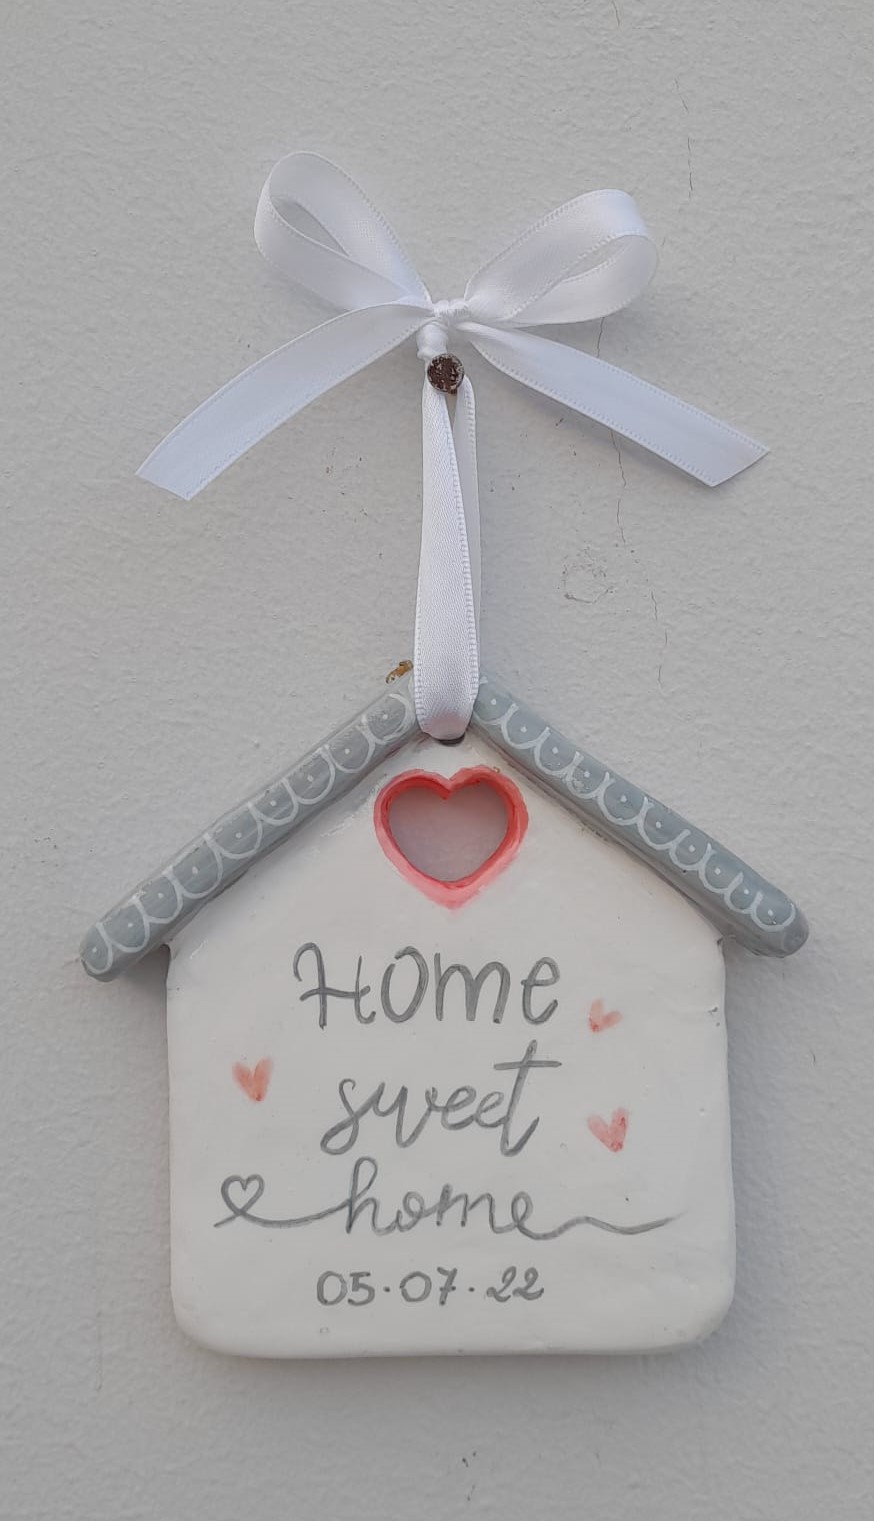 Home
sweet
home
05.07.22